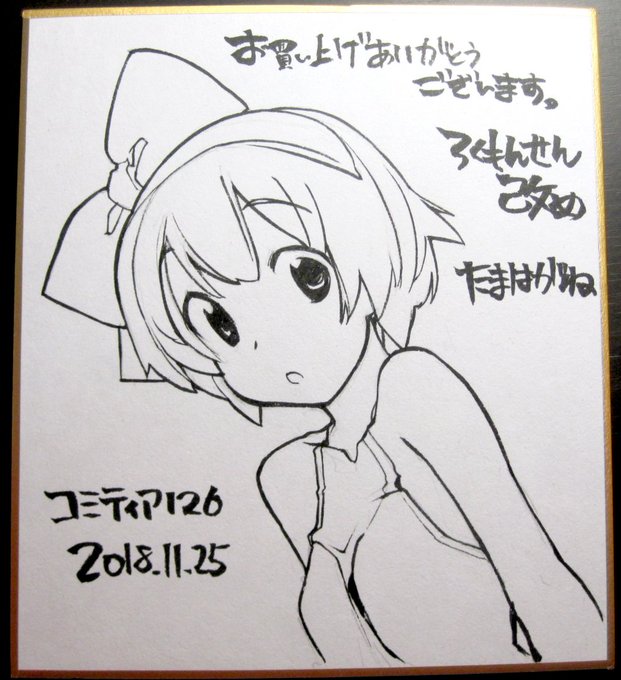 お買い上げありがとう
ございます。
ろくもんせん
改め
たまはがね
コミティア126
2018.11.25